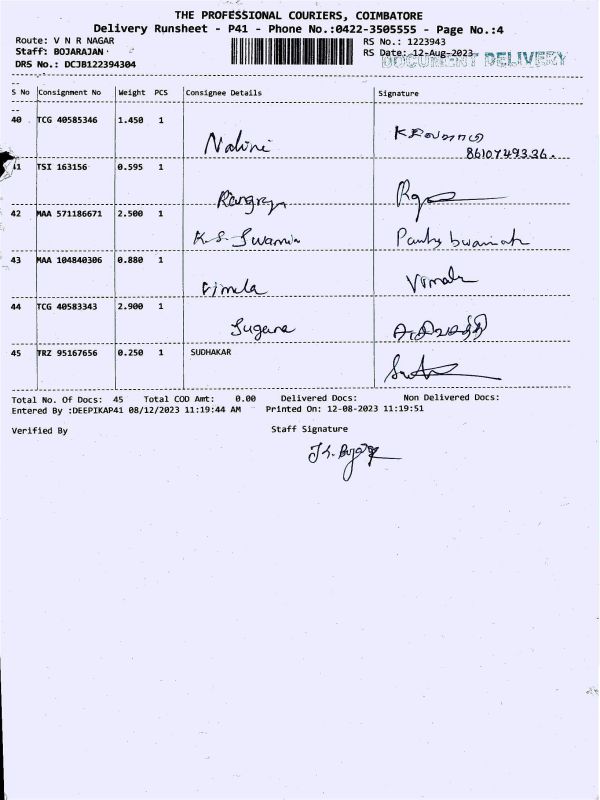 THE PROFESSIONAL COURIERS, COIMBATORE
Delivery Runsheet - P41 - Phone No.:0422-3505555 - Page No.:4
Route: V N R NAGAR
RS No.: 1223943
Staff: BOJARAJAN
RS Date: 12-Aug-2023
DOCUMENT DELIVERY
DRS No.: DCJB122394304
S No Consignment No Weight PCS Consignee Details Signature
40 TCG 40585346 1.450 1
Nalini
8610749336.
41 TSI 163156 0.595 1
42 MAA 571186671 2.500 1
K.S. Swamin
43 MAA 104840306 0.880 1
Vimala
44 TCG 40583343 2.900 1
Sugana
45 TRZ 95167656 0.250 1 SUDHAKAR
Total No. Of Docs: 45 Total COD Amt: 0.00 Delivered Docs: Non Delivered Docs:
Entered By :DEEPIKAP41 08/12/2023 11:19:44 AM Printed On: 12-08-2023 11:19:51
Verified By Staff Signature